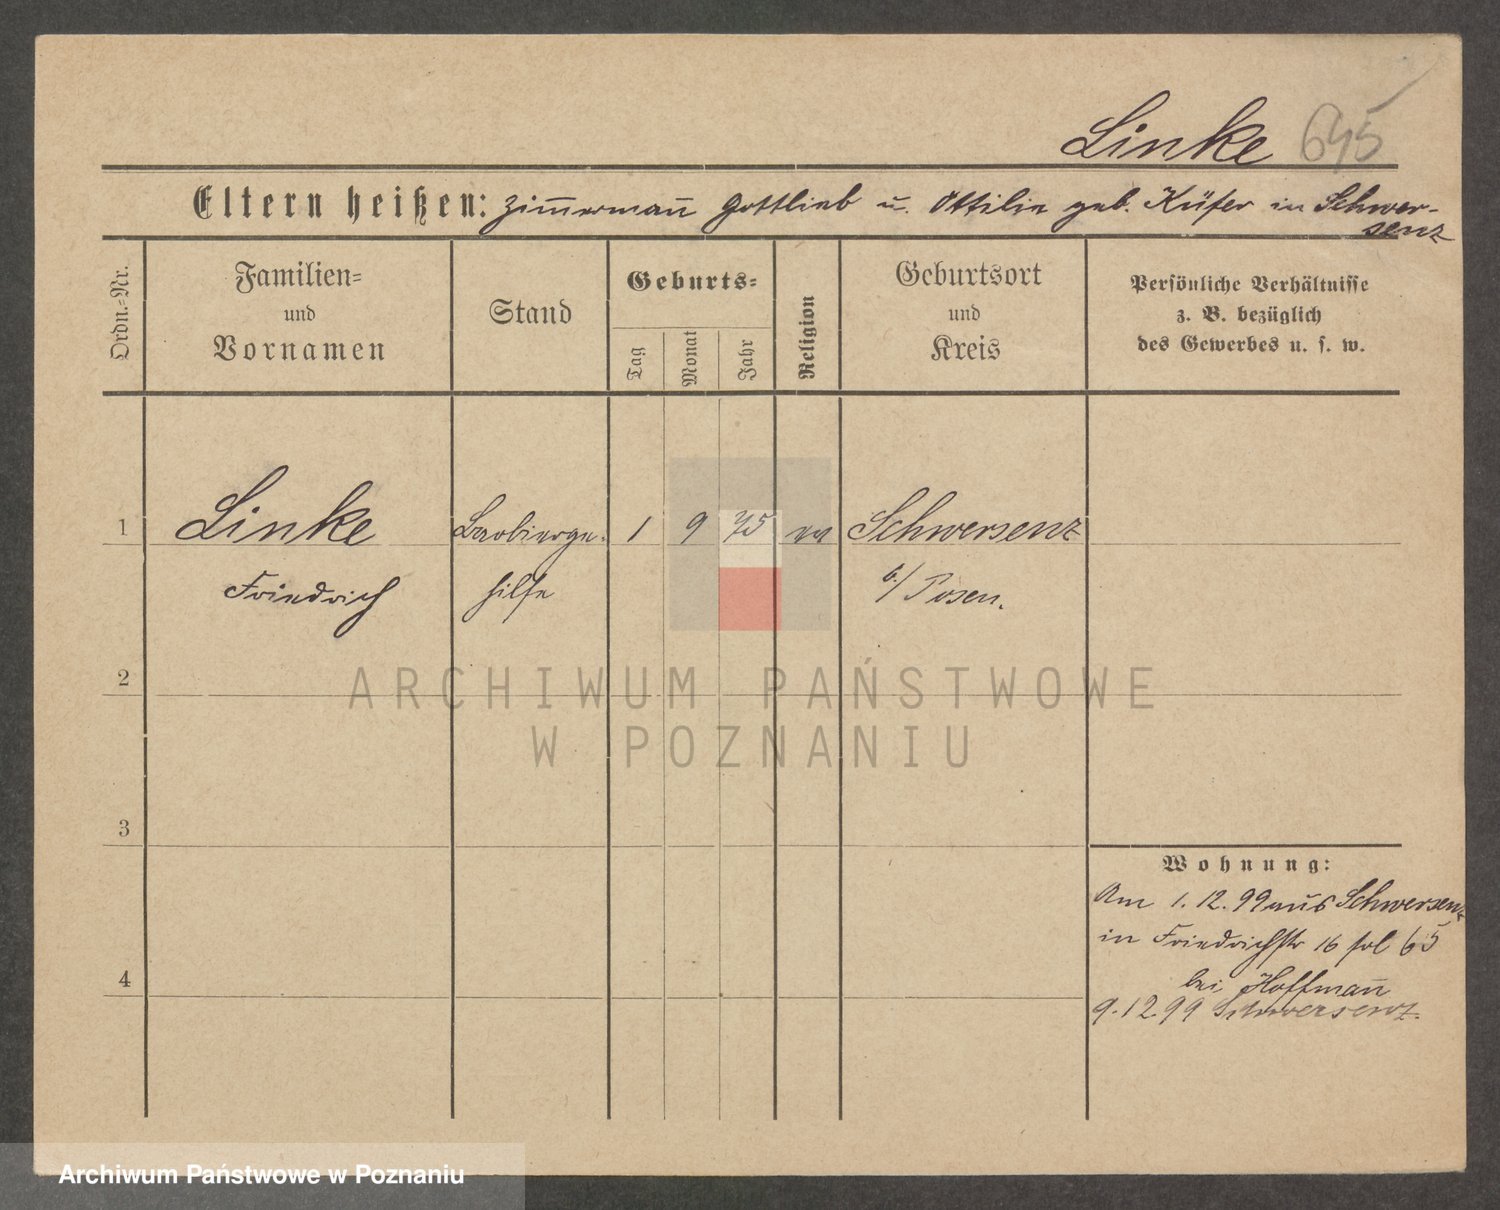 Linke 645
Eltern heißen: Zimmermañ Gottlieb u. Ottilie geb. Küfer in Schwer-
senz
Ordn.-Nr.
Familien-
und
Vornamen
Stand
Geburts-
Tag
Monat
Jahr
Religion
Geburtsort
und
Kreis
Persönliche Verhältnisse
z. B. bezüglich
des Gewerbes u. s. w.
1 Linke Barbierge- 1 9 75 ev Schwersenz
Friedrich hilfe b/ Posen.
2
3
4
Wohnung:
Am 1.12.99 aus Schwersenz
in Friedrichstr 16 pol 65
bei Hoffmañ
9.12.99 Schwersenz.
ARCHIWUM PAŃSTWOWE
W POZNANIU
Archiwum Państwowe w Poznaniu